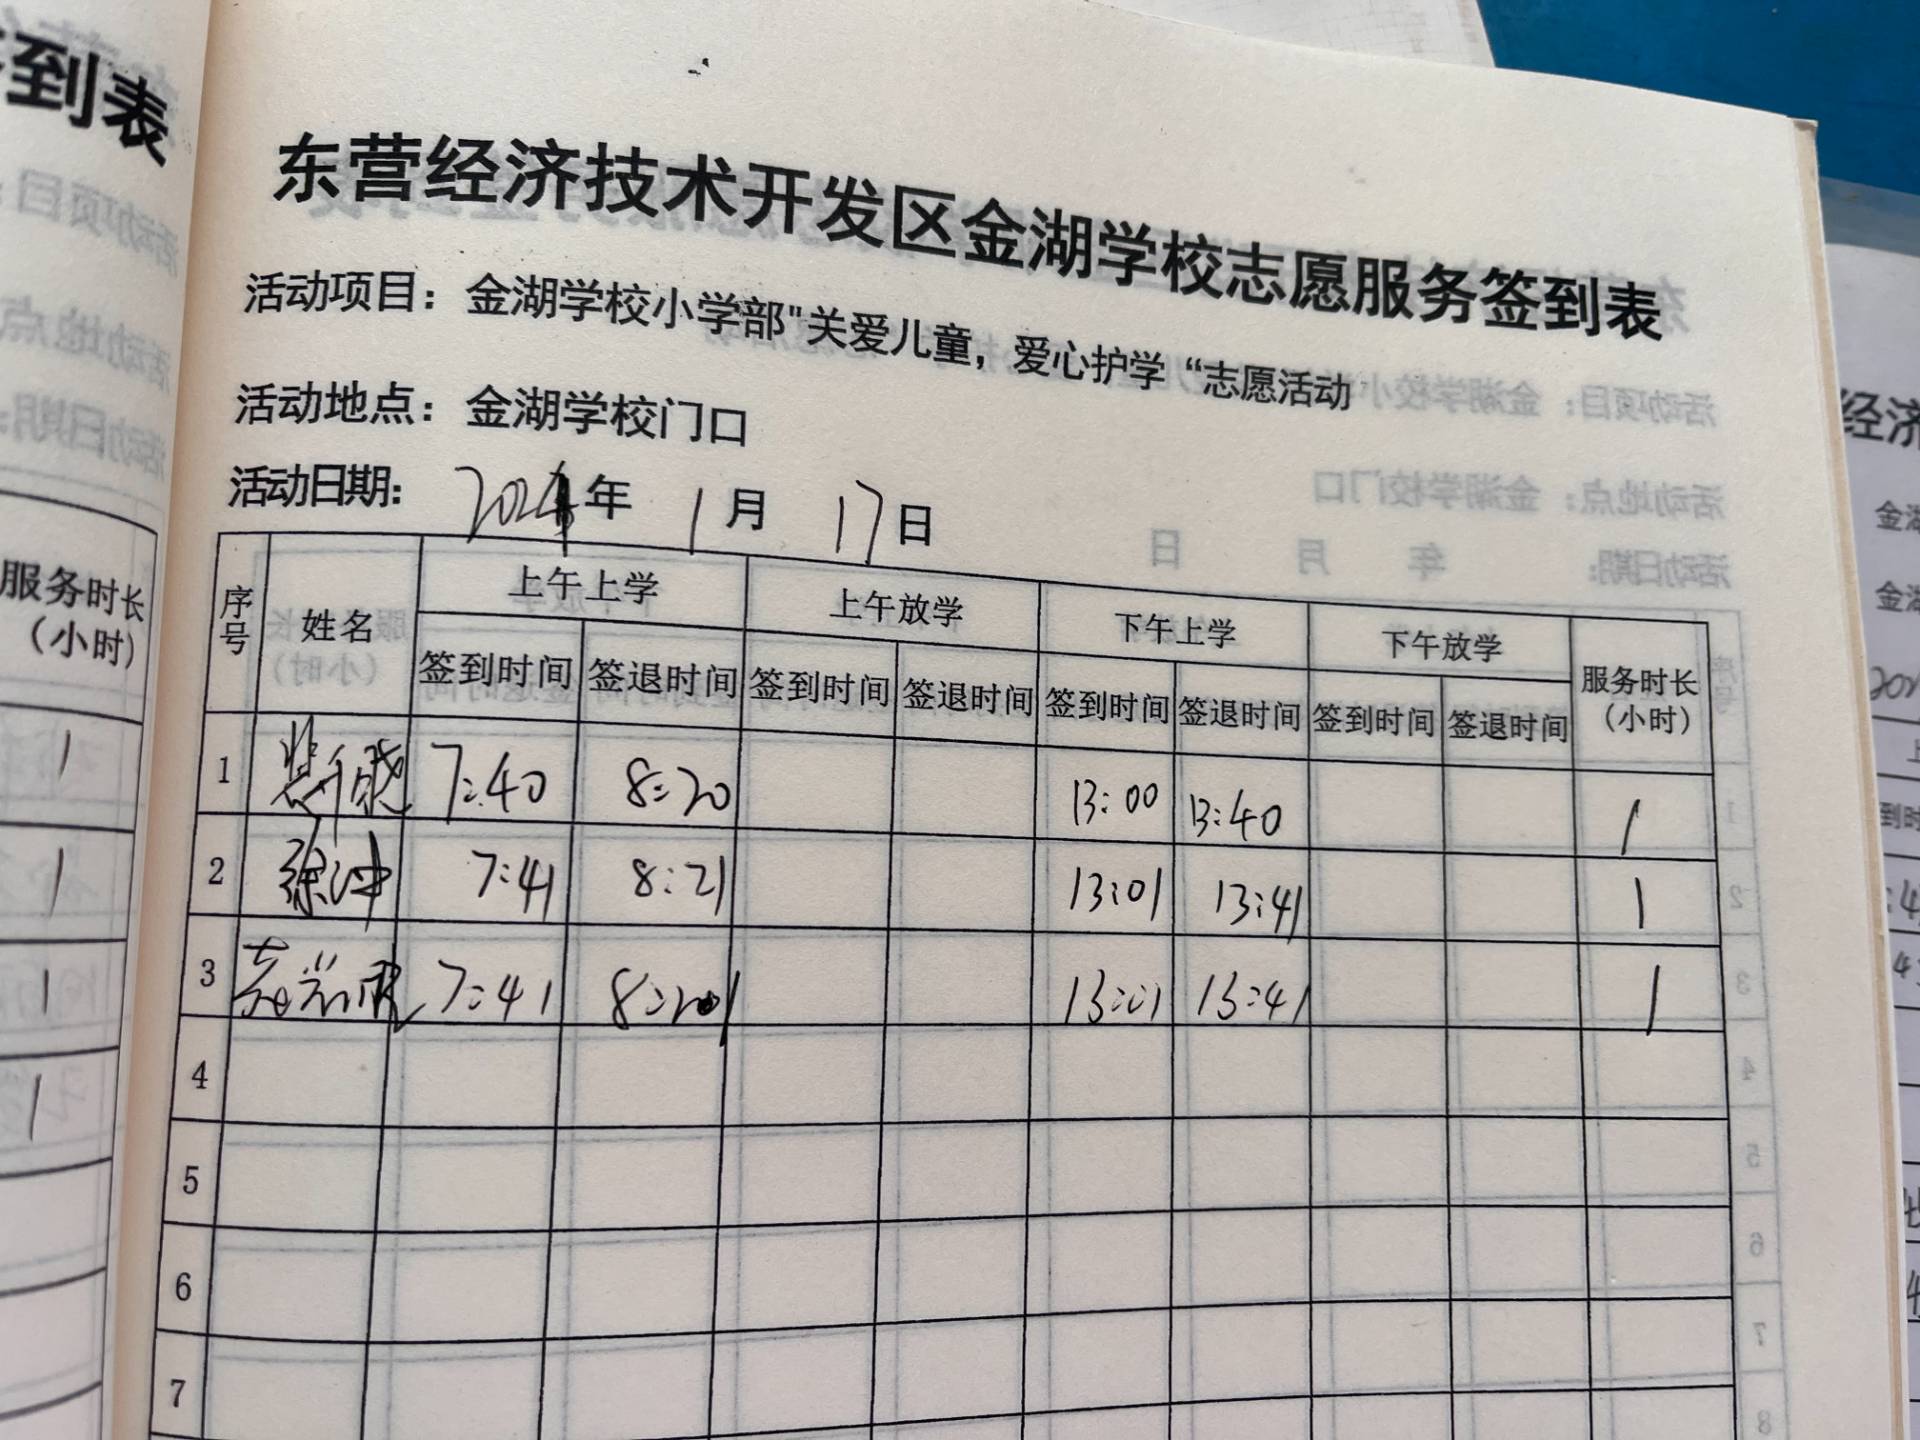 到表
东营经济技术开发区金湖学校志愿服务签到表
活动项目：金湖学校小学部"关爱儿童，爱心护学“志愿活动
活动地点：金湖学校门口
活动日期： 2024年 1月 17日
序号 姓名 上午上学 上午放学 下午上学 下午放学 服务时长（小时）
签到时间 签退时间 签到时间 签退时间 签到时间 签退时间 签到时间 签退时间
1 7:40 8:20 13:00 13:40 1
2 徐冲 7:41 8:21 13:01 13:41 1
3 7:41 8:21 13:01 13:41 1
4
5
6
7
服务时长
（小时）
1
1
1
1
经济
金湖